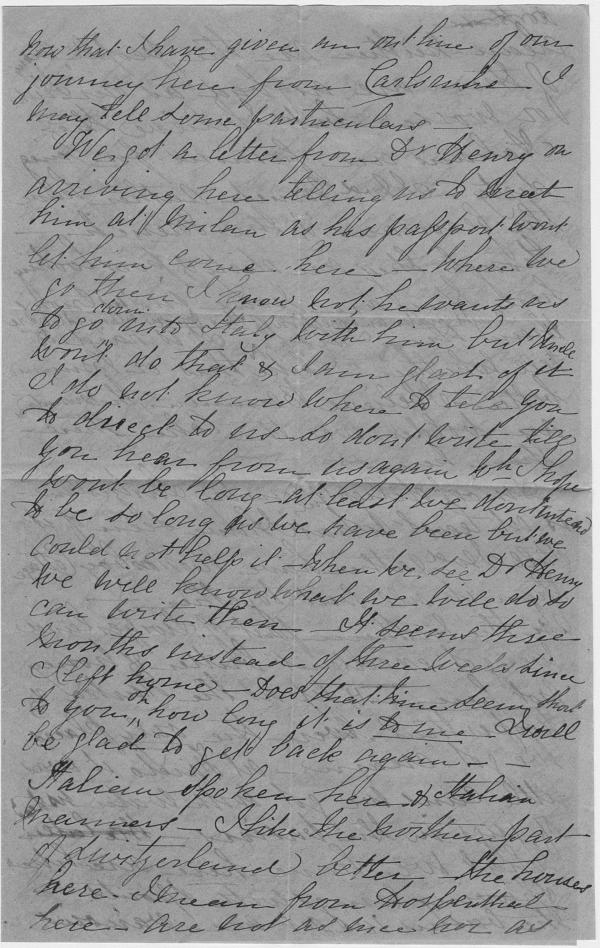 now that I have given an outline of our
journey here from Carlsruhe I
may tell some particulars —
We got a letter from Dr Henry on
arriving here telling us to meet
him at Milan as his passport wont
let him come here — Where we
go then I know not, he wants us
to go down into Italy with him but Uncle
wont do that & I am glad of it
I do not know where to tell you
to direct to us so dont write till
you hear from us again wh. I hope
wont be long at least we dont intend
to be so long as we have been but we
could not help it — When we see Dr Henry
we will know what we will do so
can write then — It seems three
months instead of three weeks since
I left home — Does that time seem short
to you, oh how long it is to me I will
be glad to get back again — —
Italian spoken here & Italian
manners — I like the Northern part
of Switzerland better — the houses
here I mean from Hospenthal
here — are not as nice nor as